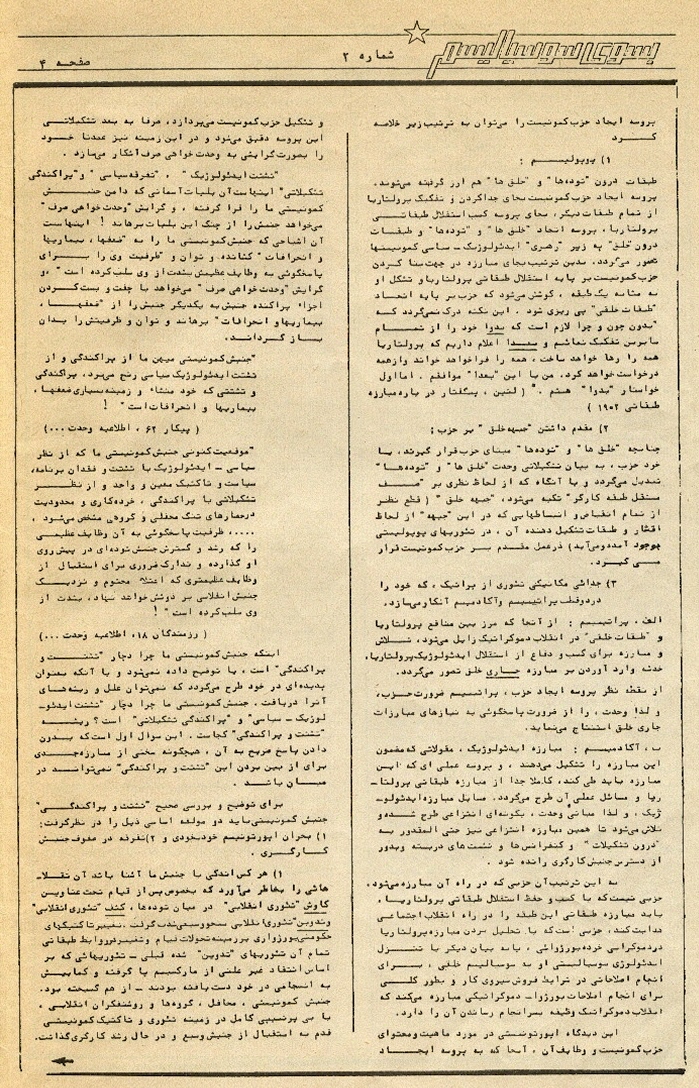 بسوی سوسیالیسم
شماره ۲
صفحه ۴
پروسه ایجاد حزب کمونیست را میتوان به ترتیب زیر خلاصه
کرد
۱) پوپولیسم :
طبقات درون "تودهها" و "خلق ها" هم ارز گرفته میشوند.
پروسه ایجاد حزب کمونیست بجای جدا کردن و تفکیک پرولتاریا
از تمام طبقات دیگر، بجای پروسه کسب استقلال طبقاتی
پرولتاریا، پروسه اتحاد "خلق ها" و "تودهها" و طبقات
درون "خلق" به زیر "رهبری" ایدئولوژیک - سیاسی کمونیستها
تصور میگردد. بدین ترتیب بجای مبارزه در جهت بنا کردن
حزب کمونیست بر پایه استقلال طبقاتی پرولتاریا و تشکل او
به مثابه یک طبقه، کوشش میشود که حزب بر پایه اتحاد
"طبقات خلقی" پی ریزی شود. این نکته درک نمیگردد که
"بدون چون و چرا لازم است که بدوا خود را از تمام
سایرین تفکیک نمائیم و سپس اعلام داریم که پرولتاریا
همه را رها خواهد ساخت، همه را فراخواهد خواند و از همه
درخواست خواهد کرد. من با این "بعدا" موافقم. اما اول
خواستار "بدوا" هستم." (لنین، پیگفتار در باره مبارزه
طبقاتی ۱۹۰۲)
۲) مقدم داشتن "جبهه خلق" بر حزب:
چنانچه "خلق ها" و "تودهها" مبنای حزب قرار گیرند، یا
خود حزب، به بیان تشکیلاتی وحدت "خلق ها" و "تودهها"
تبدیل میگردد و یا آنگاه که از لحاظ نظری بر "صف
مستقل طبقه کارگر" تکیه میشود، "جبهه خلق" (قطع نظر
از تمام انقباض و انبساطهایی که در این "جبهه" از لحاظ
اقشار و طبقات تشکیل دهنده آن، در تئوریهای پوپولیستی
بوجود آمده و میآید) در عمل مقدم بر حزب کمونیست قرار
می گیرد.
۳) جدائی مکانیکی تئوری از پراتیک، که خود را
در دو قطب پراتیسیسم و آکادمیسم آشکار میسازد.
الف. پراتیسیسم : از آنجا که مرز بین منافع پرولتاریا
و "طبقات خلقی" در انقلاب دموکراتیک زایل میشود، تلاش
و مبارزه برای کسب و دفاع از استقلال ایدئولوژیک پرولتاریا،
خدشه وارد آوردن بر مبارزه جاری خلق تصور میگردد.
از نقطه نظر پروسه ایجاد حزب، پراتیسیسم ضرورت حزب،
و لذا وحدت، را از ضرورت پاسخگوئی به نیازهای مبارزات
جاری خلق استنتاج مینماید.
ب. آکادمیسم : مبارزه ایدئولوژیک، مقولاتی که مضمون
این مبارزه را تشکیل میدهند، و پروسه عملی ای که این
مبارزه باید طی کند، کاملا جدا از مبارزه طبقاتی پرولتا-
ریا و مسائل عملی آن طرح میگردد. مسایل مبارزه ایدئولو-
ژیک، و لذا مبانی وحدت، بگونهای انتزاعی طرح شده و
تلاش میشود تا همین مبارزه انتزاعی نیز حتی المقدور به
"درون تشکیلات" و کنفرانس ها و نشست های دربسته و بدور
از دسترس جنبش کارگری رانده شود.
به این ترتیب آن حزبی که در راه آن مبارزه میشود،
حزبی نیست که با کسب و حفظ استقلال طبقاتی پرولتاریا،
باید مبارزه طبقاتی این طبقه را در راه انقلاب اجتماعی
هدایت کند، حزبی است که با تحلیل بردن مبارزه پرولتاریا
در دموکراسی خرده بورژوائی، یا به بیان دیگر با تنزل
ایدئولوژی سوسیالیستی او به سوسیالیسم خلقی، برای
انجام اصلاحاتی در شرایط فروش نیروی کار و بطور کلی
برای انجام اصلاحات بورژوا- دموکراتیکی مبارزه میکند که
انقلاب دموکراتیک وظیفه بسرانجام رساندن آن را دارد.
این دیدگاه اپورتونیستی در مورد ماهیت و محتوای
حزب کمونیست و وظایف آن، آنجا که به پروسه ایجاد
و تشکیل حزب کمونیست میپردازد، صرفا به بعد تشکیلاتی
این پروسه دقیق میشود و در این زمینه نیز عمدتا خود
را بصورت گرایشی به وحدت خواهی صرف آشکار میسازد.
"تشتت ایدئولوژیک" ، "تفرقه سیاسی" و "پراکندگی
تشکیلاتی" اینهاست آن بلیات آسمانی که دامن جنبش
کمونیستی ما را فرا گرفته، و گرایش "وحدت خواهی صرف"
میخواهد جنبش را از چنگ این بلیات برهاند! اینهاست
آن اشباحی که جنبش کمونیستی ما را به "ضعفها، بیماریها
و انحرافات" کشانده، و توان و "ظرفیت وی را برای
پاسخگوئی به وظایف عظیمش بشدت از وی سلب کرده است" ، و
گرایش "وحدت خواهی صرف" میخواهد با چفت و بست کردن
اجزاء پراکنده جنبش به یکدیگر جنبش را از "ضعفها،
بیماریها و انحرافات" برهاند و توان و ظرفیتش را بدان
باز گرداند.
"جنبش کمونیستی میهن ما از پراکندگی و از
تشتت ایدئولوژیک سیاسی رنج میبرد، پراکندگی
و تشتتی که خود منشاء و زمینه بسیاری ضعفها،
بیماریها و انحرافات است" !
( پیکار ۶۲ ، اطلاعیه وحدت ...)
"موقعیت کنونی جنبش کمونیستی ما که از نظر
سیاسی - ایدئولوژیک با تشتت و فقدان برنامه،
سیاست و تاکتیک معین و واحد و از نظر
تشکیلاتی با پراکندگی، خرده کاری و محدودیت
در حصارهای تنگ محفلی و گروهی مشخص میشود،
..... ظرفیت پاسخگوئی به آن وظایف عظیمی
را که رشد و گسترش جنبش تودهای در پیش روی
او گذارده و تدارک ضروری برای استقبال از
وظایف عظیمتری که اعتلاء محتوم و نزدیک
جنبش انقلابی بر دوشش خواهد نهاد، بشدت از
وی سلب کرده است" !
( رزمندگان ۱۸، اطلاعیه وحدت ...)
اینکه جنبش کمونیستی ما چرا دچار "تشتت و
پراکندگی" است، یا توضیح داده نمیشود و یا آنکه بعنوان
پدیدهای در خود طرح میگردد که نمیتوان علل و ریشههای
آنرا دریافت. جنبش کمونیستی ما چرا دچار "تشتت ایدئو-
لوژیک - سیاسی" و "پراکندگی تشکیلاتی" است؟ ریشه
"تشتت و پراکندگی" کجاست. این سوال اول است که بدون
دادن پاسخ صریح به آن، هیچگونه سخنی از مبارزه جدی
برای از بین بردن این "تشتت و پراکندگی" نمیتواند در
میان باشد.
برای توضیح و بررسی صحیح "تشتت و پراکندگی"
جنبش کمونیستی باید دو مولفه اساسی ذیل را در نظر گرفت:
۱) بحران اپورتونیسم خودبخودی و ۲) تفرقه در صفوف جنبش
کارگری.
۱) هر کس اندکی با جنبش ما آشنا باشد آن تقلا-
هائی را بخاطر میآورد که بخصوص پس از قیام تحت عناوین
کاوش "تئوری انقلابی" در میان تودهها، کشف "تئوری انقلابی"
و تدوین "تئوری انقلابی" صورت گرفت. تغییر تاکتیکهای
حکومتی بورژوازی بر زمینه تحولات قیام و تغییر در روابط طبقاتی
تمام آن تئوریهای "تدوین" شده قبلی - تئوریهائی که بر
اساس انتقاد غیر علنی از مارکسیسم پا گرفته و کمابیش
به انسجامی در خود دست یافته بودند - از هم گسیخته بود.
جنبش کمونیستی، محافل، گروهها و روشنفکران انقلابی،
با بی پرنسیپی کامل در زمینه تئوری و تاکتیک کمونیستی
قدم به استقبال از جنبش وسیع و در حال رشد کارگری گذاشت.